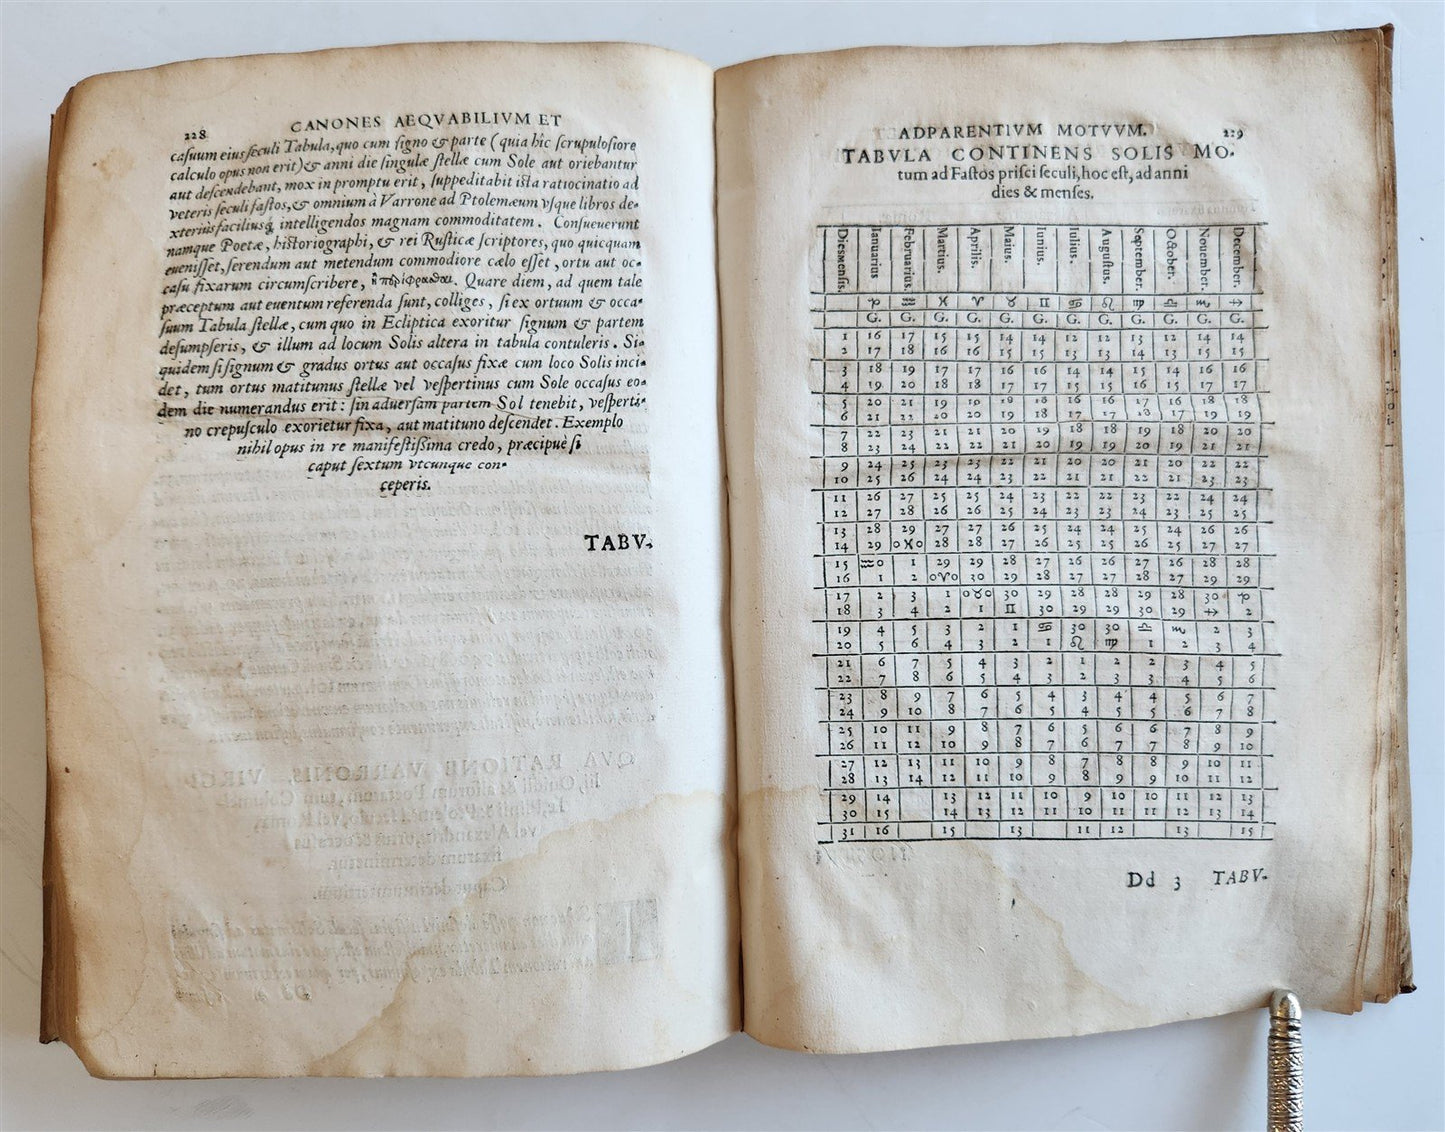 228
CANONES AEQVABILIVM ET
casuum eius seculi Tabula, quo cum signo & parte (quia hîc scrupulosiore
calculo opus non erit) & anni die singulæ stellæ cum Sole aut oriebantur
aut descendebant, mox in promptu erit, suppeditabit ista ratiocinatio ad
veteris seculi fastos, & omnium à Varrone ad Ptolemæum vsque libros de-
xterius faciliusq́; intelligendos magnam commoditatem. Consueuerunt
namque Poetæ, historiographi, & rei Rusticæ scriptores, quo quicquam
euenisset, serendum aut metendum commodiore cælo esset, ortu aut oc-
casu fixarum circumscribere, Quare diem, ad quem tale
præceptum aut euentum referenda sunt, colliges, si ex ortuum & occa-
suum Tabula stellæ, cum quo in Ecliptica exoritur signum & partem
desumpseris, & illum ad locum Solis altera in tabula contuleris. Si-
quidem si signum & gradus ortus aut occasus fixæ cum loco Solis inci-
det, tum ortus matitunus stellæ vel vespertinus cum Sole occasus eo-
dem die numerandus erit: sin aduersam partem Sol tenebit, vesperti-
no crepusculo exorietur fixa, aut matituno descendet. Exemplo
nihil opus in re manifestissima credo, præcipuè si
caput sextum vtcunque con-
ceperis.
TABV-
ADPARENTIVM MOTVVM. 229
TABVLA CONTINENS SOLIS MO-
tum ad Fastos prisci seculi, hoc est, ad anni
dies & menses.
Dies mensis. Ianuarius Februarius. Martius. Aprilis. Maius. Iunius. Iulius. Augustus. September. October. Nouember. December.
♑ ♒ ♓ ♈ ♉ ♊ ♋ ♌ ♍ ♎ ♏ ♐
G. G. G. G. G. G. G. G. G. G. G. G.
1 16 17 15 15 14 14 12 12 13 12 14 14
2 17 18 16 16 15 15 13 13 14 13 15 15
3 18 19 17 17 16 16 14 14 15 14 16 16
4 19 20 18 18 17 17 15 15 16 15 17 17
5 20 21 19 19 18 18 16 16 17 16 18 18
6 21 22 20 20 19 18 17 17 18 17 19 19
7 22 23 21 21 20 19 18 18 19 18 20 20
8 23 24 22 22 21 20 19 19 20 19 21 21
9 24 25 23 23 22 21 20 20 21 20 22 22
10 25 26 24 24 23 22 21 21 22 21 23 23
11 26 27 25 25 24 23 22 22 23 22 24 24
12 27 28 26 26 25 24 23 23 24 23 25 25
13 28 29 27 27 26 25 24 24 25 24 26 26
14 29 0♓0 28 28 27 26 25 25 26 25 27 27
15 ♒0 1 29 29 28 27 26 26 27 26 28 28
16 1 2 0♈0 30 29 28 27 27 28 27 29 29
17 2 3 1 0♉0 30 29 28 28 29 28 30 ♑
18 3 4 2 1 ♊ 30 29 29 30 29 ♐ 2
19 4 5 3 2 1 ♋ 30 30 ♎ ♏ 2 3
20 5 6 4 3 2 1 ♌ ♍ 1 2 3 4
21 6 7 5 4 3 2 1 2 2 3 4 5
22 7 8 6 5 4 3 2 3 3 4 5 6
23 8 9 7 6 5 4 3 4 4 5 6 7
24 9 10 8 7 6 5 4 5 5 6 7 8
25 10 11 9 8 7 6 5 6 6 7 8 9
26 11 12 10 9 8 7 6 7 7 8 9 10
27 12 13 11 10 9 8 7 8 8 9 10 11
28 13 14 12 11 10 9 8 9 9 10 11 12
29 14 13 12 11 10 9 10 10 11 12 13
30 15 14 13 12 11 10 11 11 12 13 14
31 16 15 13 11 12 13 15
Dd 3 TABV-